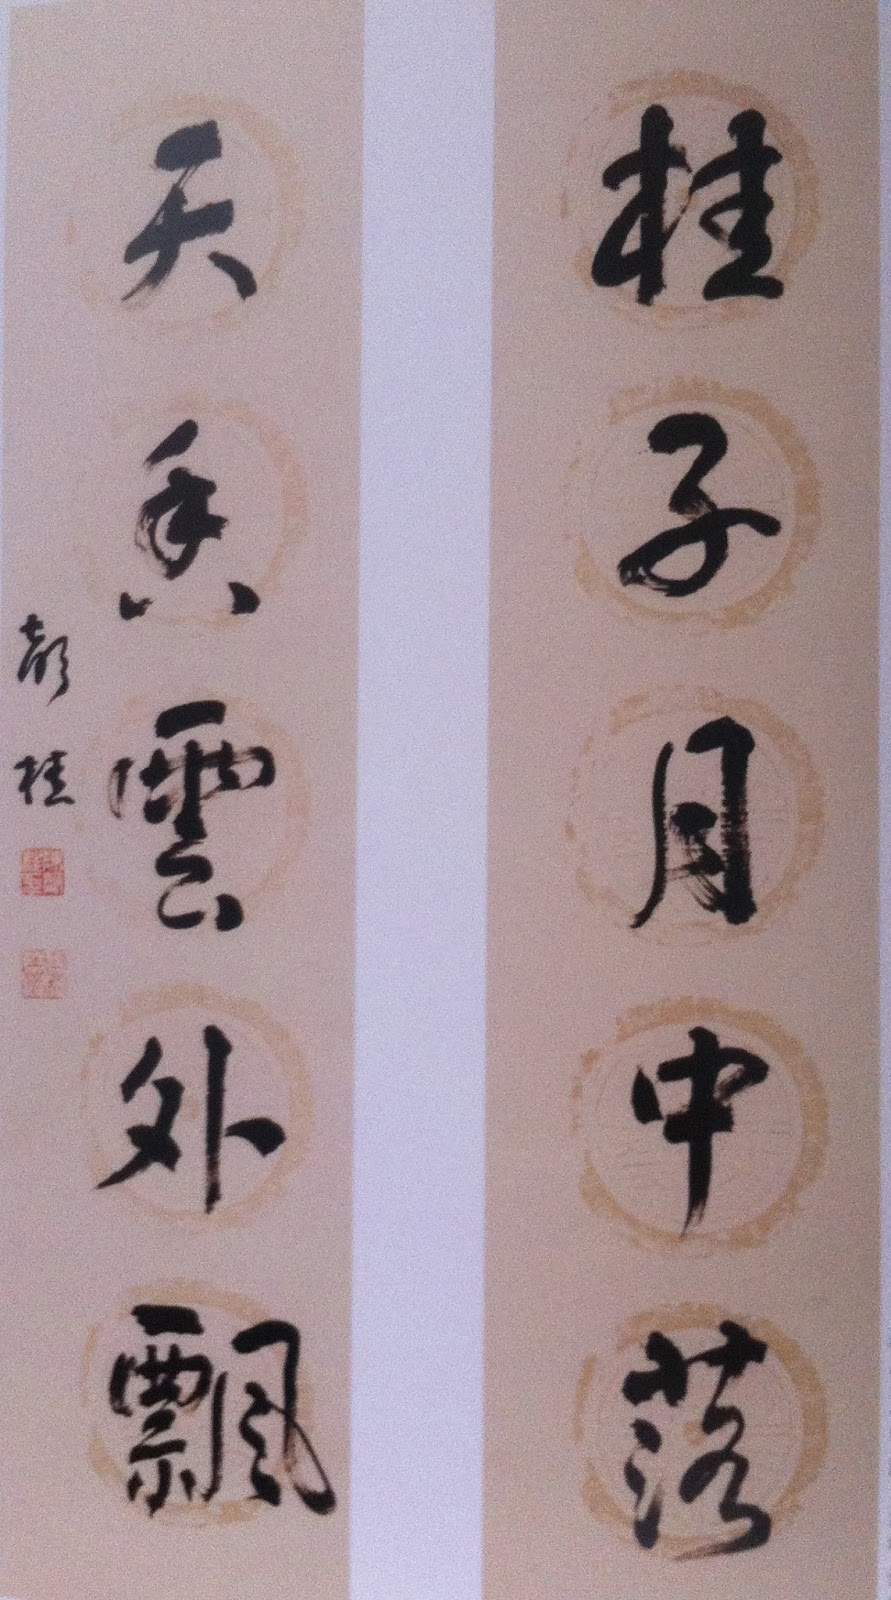 桂子月中落
天香雲外飄